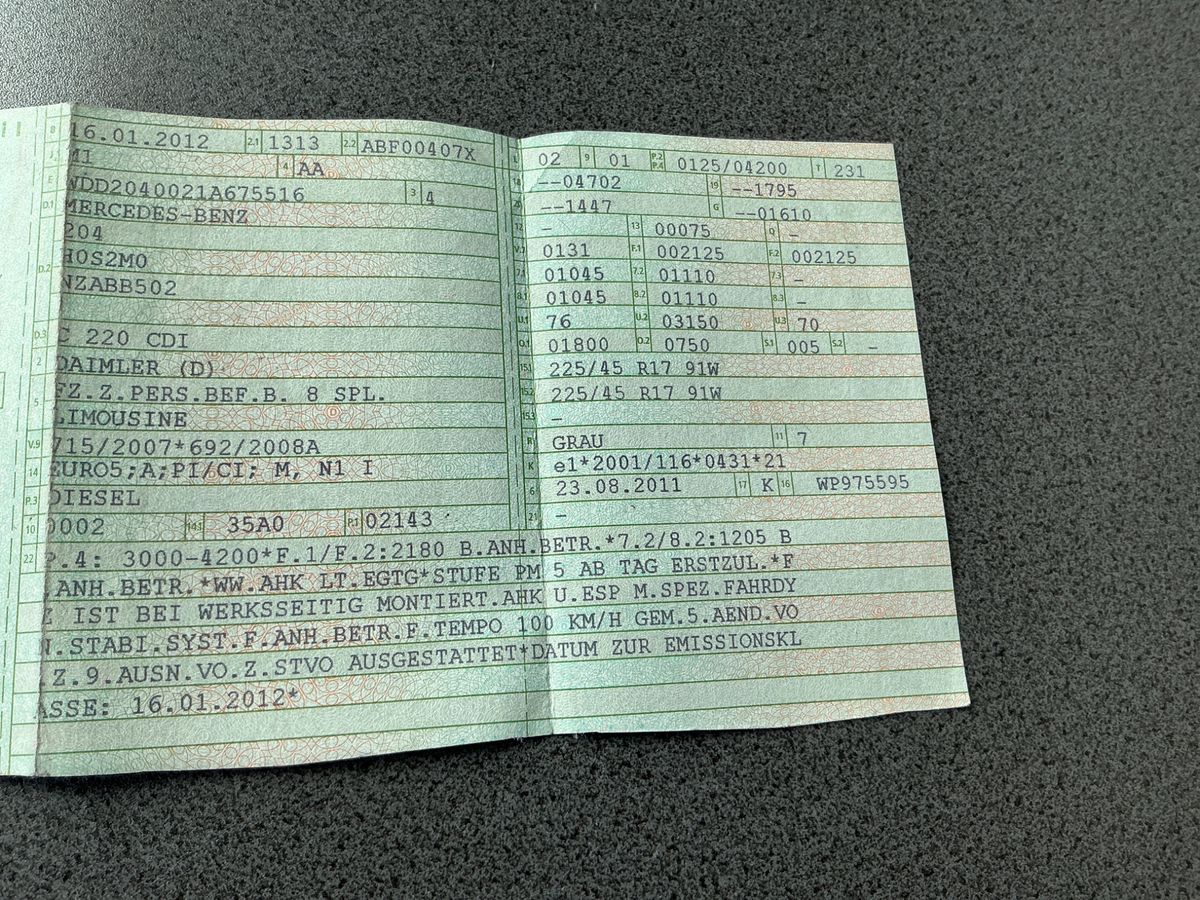 16.01.2012 2.1 1313 2.2 ABF00407X
J M1 4 AA
E WDD2040021A675516 3 4
D.1 MERCEDES-BENZ
204
D.2 H0S2M0
NZABB502
D.3 C 220 CDI
2 DAIMLER (D)
5 FZ.Z.PERS.BEF.B. 8 SPL.
LIMOUSINE
V.9 715/2007*692/2008A
14 EURO5;A;PI/CI; M, N1 I
P.3 DIESEL
10 0002 14.1 35A0 P.1 02143
L 02 9 01 P.2 P.4 0125/04200 T 231
18 --04702 19 --1795
20 --1447 G --01610
12 - 13 00075 Q -
V.7 0131 F.1 002125 F.2 002125
7.1 01045 7.2 01110 7.3 -
8.1 01045 8.2 01110 8.3 -
U.1 76 U.2 03150 U.3 70
O.1 01800 O.2 0750 S.1 005 S.2 -
15.1 225/45 R17 91W
15.2 225/45 R17 91W
15.3 -
R GRAU 11 7
K e1*2001/116*0431*21
6 23.08.2011 17 K 16 WP975595
21 -
22 P.4: 3000-4200*F.1/F.2:2180 B.ANH.BETR.*7.2/8.2:1205 B
.ANH.BETR.*WW.AHK LT.EGTG*STUFE PM 5 AB TAG ERSTZUL.*F
Z IST BEI WERKSSEITIG MONTIERT.AHK U.ESP M.SPEZ.FAHRDY
N.STABI.SYST.F.ANH.BETR.F.TEMPO 100 KM/H GEM.5.AEND.VO
.Z.9.AUSN.VO.Z.STVO AUSGESTATTET*DATUM ZUR EMISSIONSKL
ASSE: 16.01.2012*